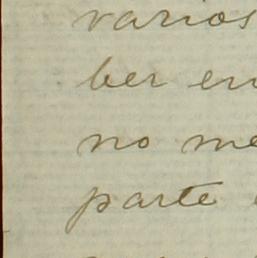 varios
ber en
no me
parte